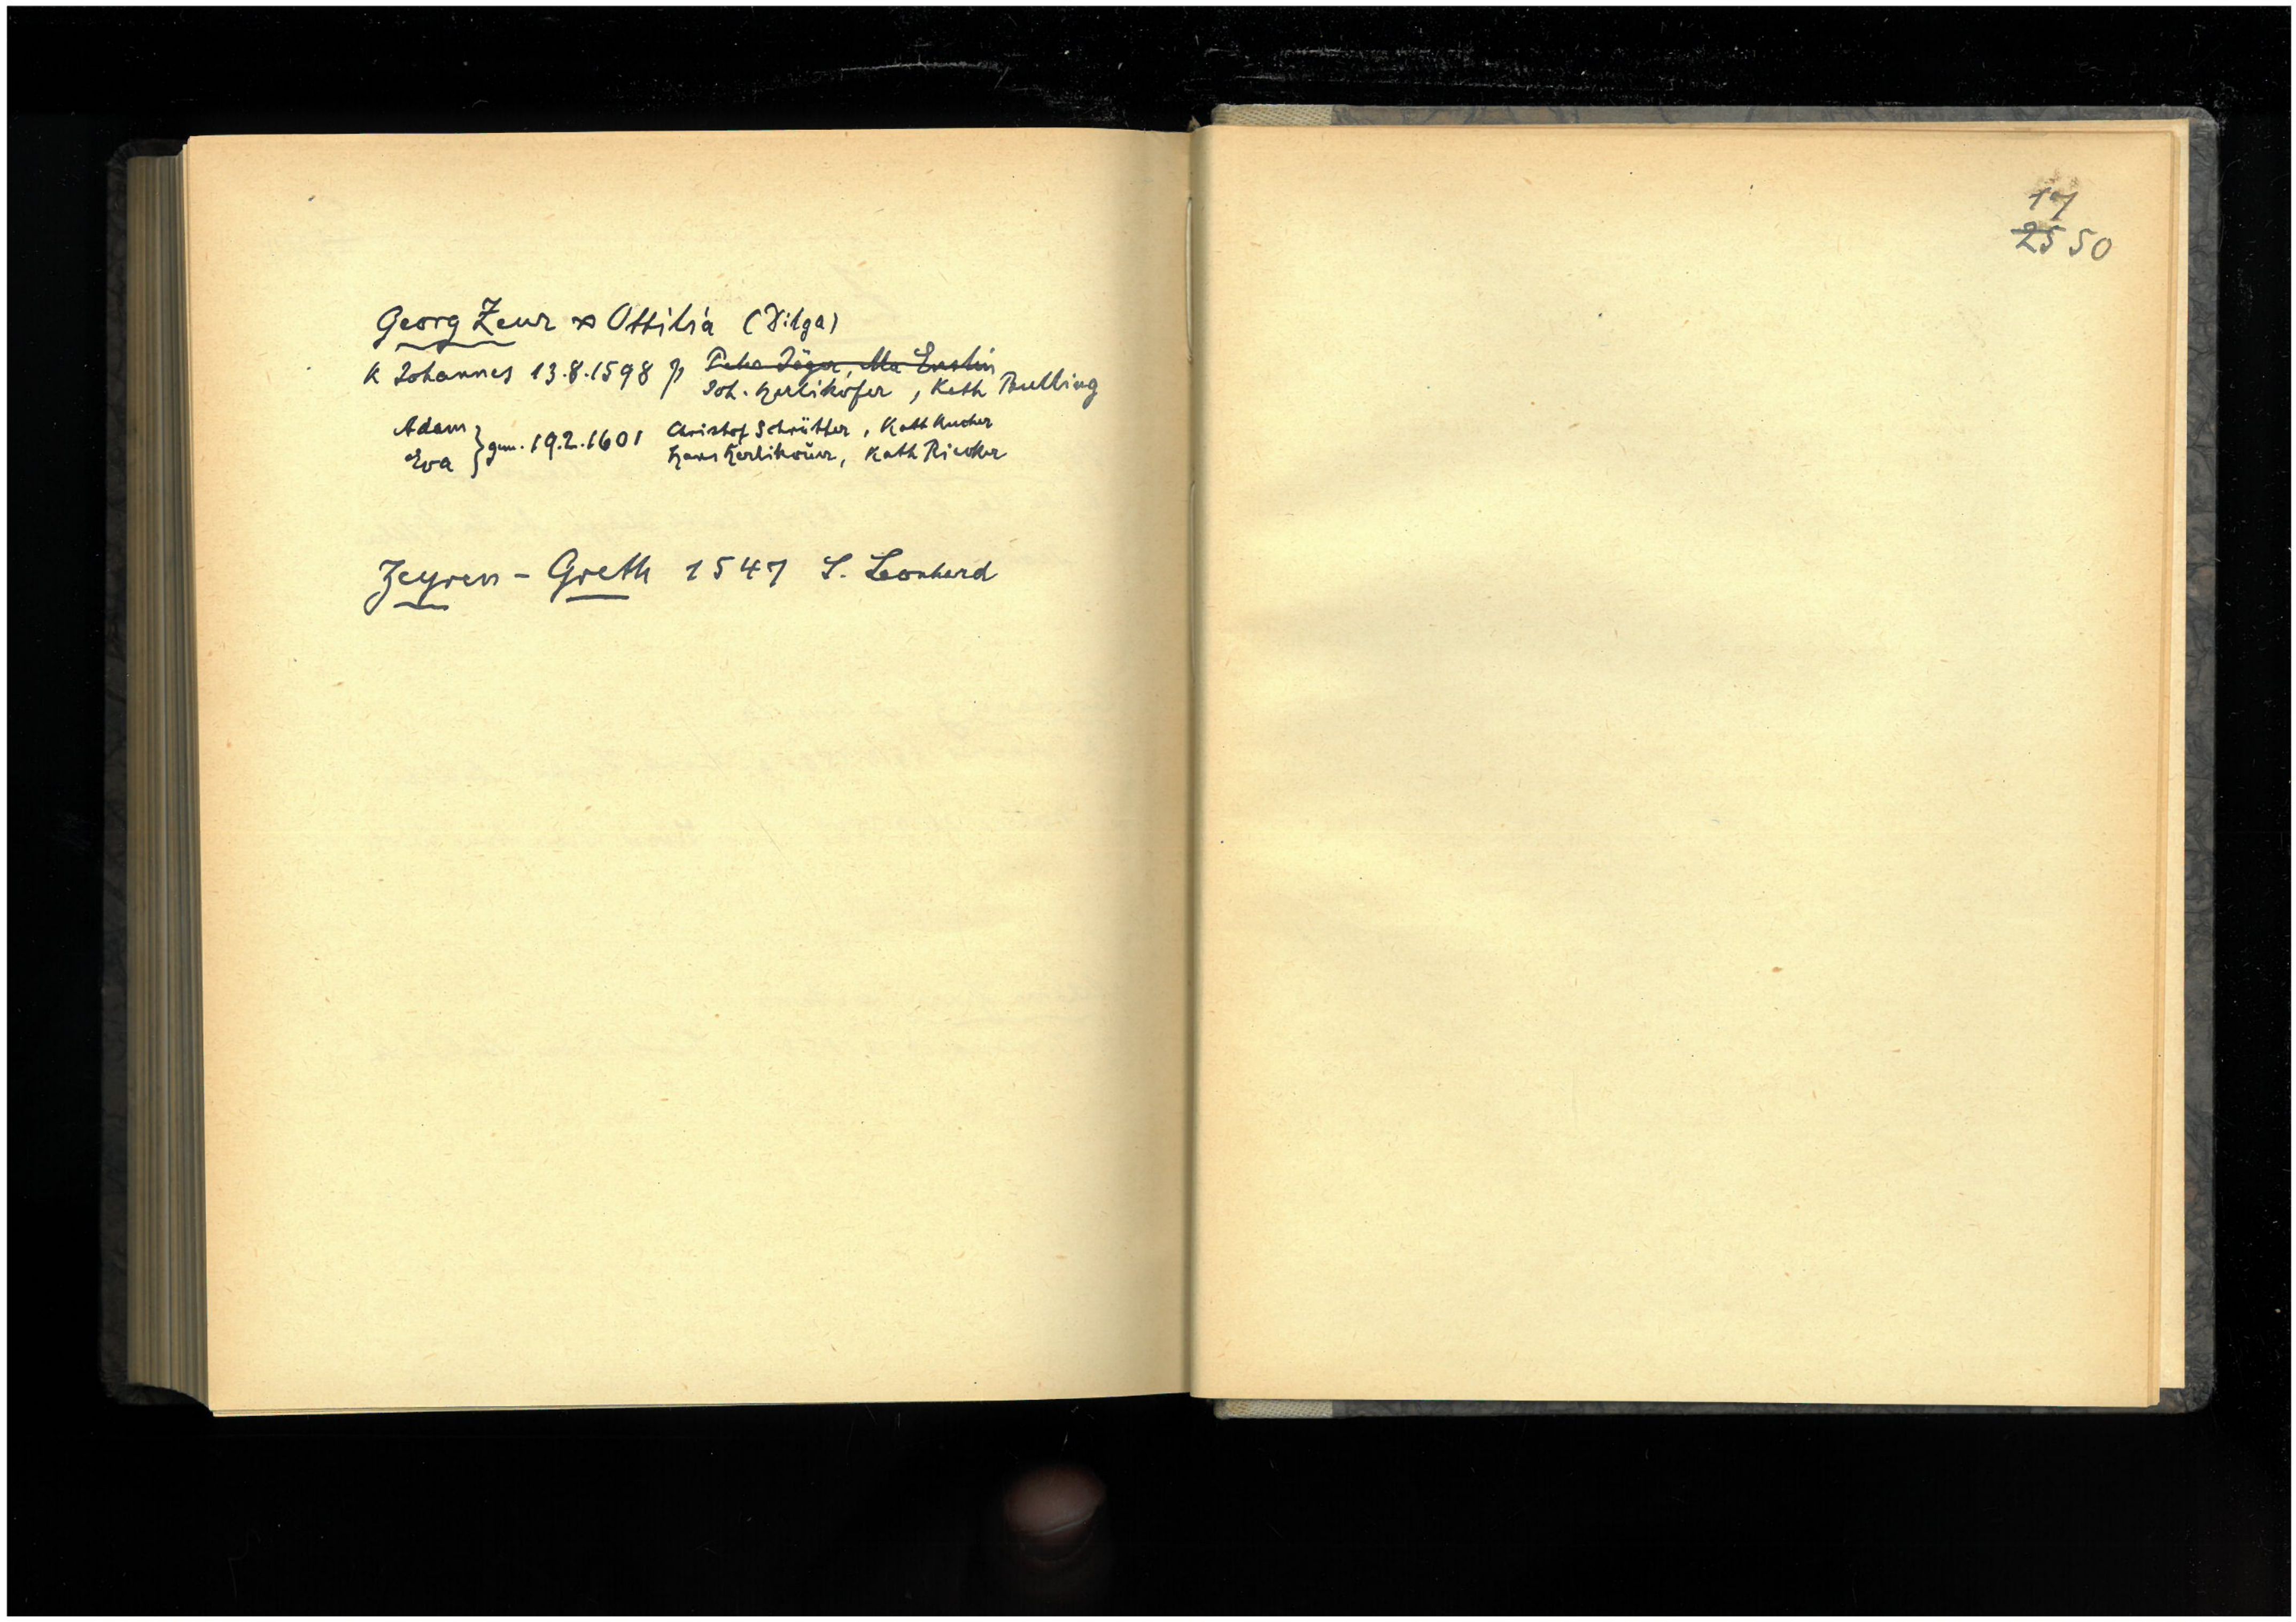 Georg Zeur ∞ Ottilia (Dilga)
K Johannes 13.8.1598 p Peter Jäger, Ma Enslin
Joh. Herlikofer, Kath Bulling
Adam } gem. 19.2.1601 Christof Schrütter, Kath Kucher
Eva Hans Herlikouer, Kath Riecker
Zeyren - Greth 1547 S. Leonhard
17
25 50